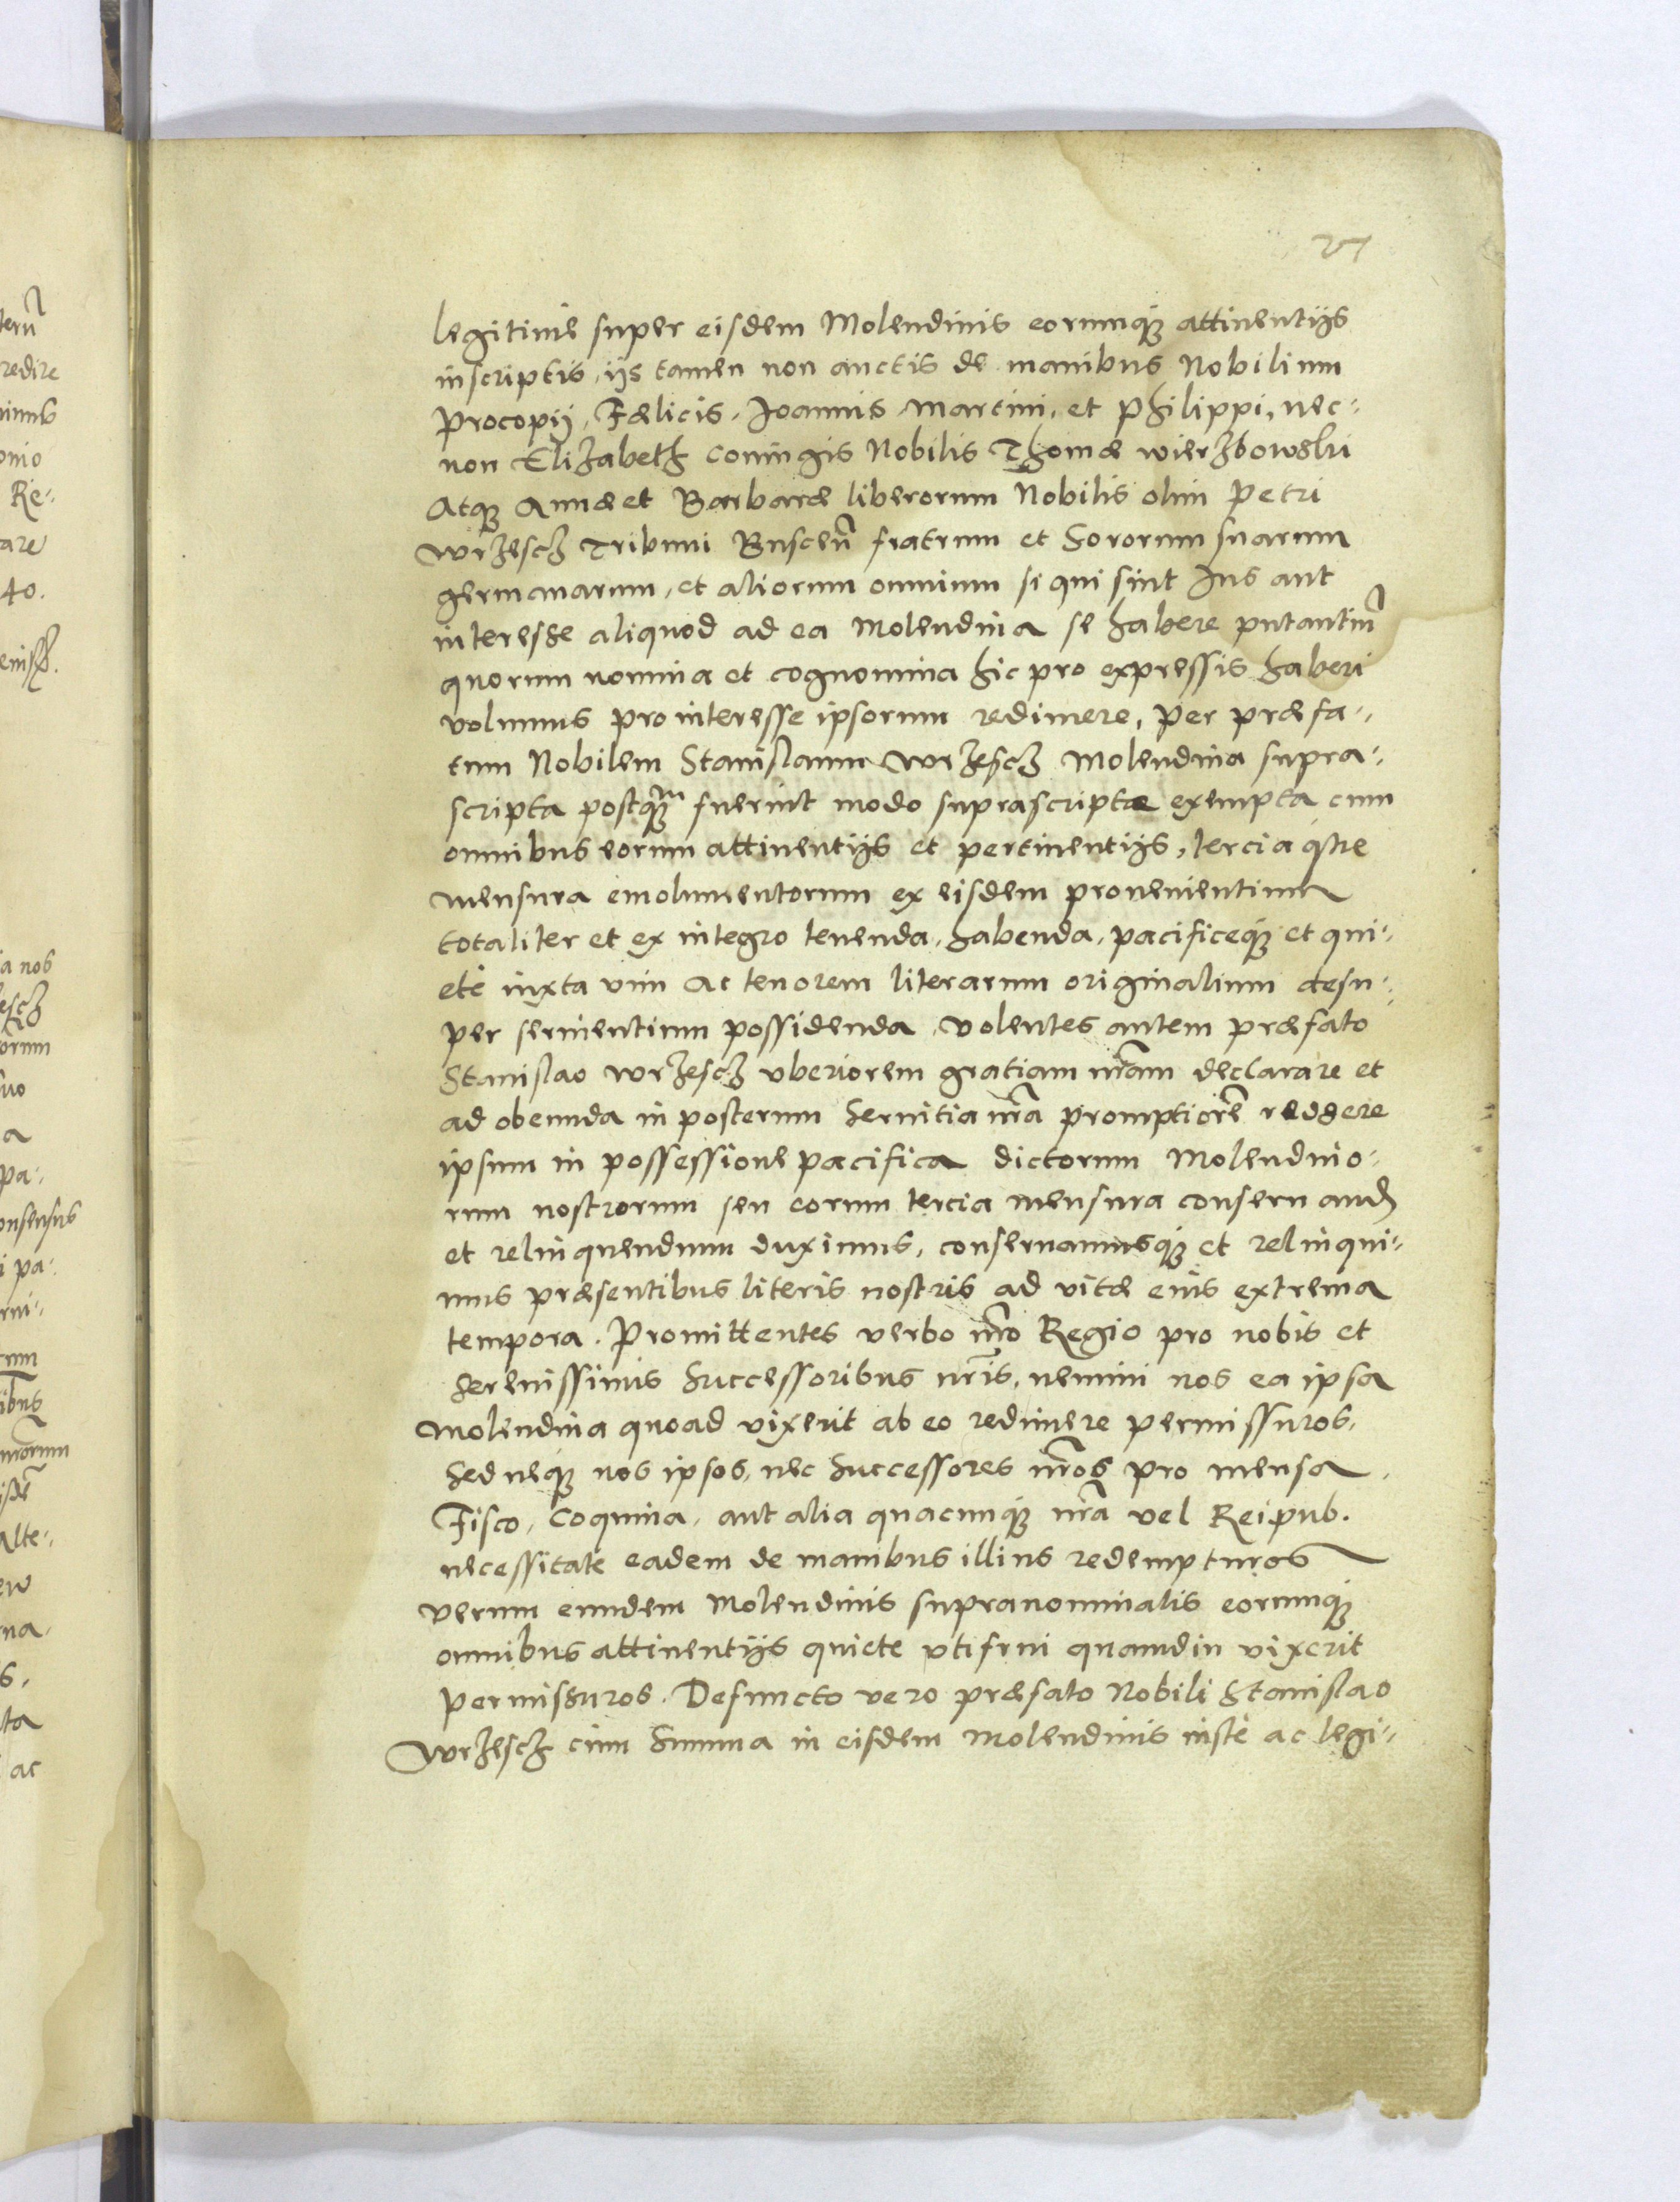 27
legitime super eisdem Molendinis eorumq́ꝫ attinentijs
inscriptis, ijs tamen non auctis de manibus Nobilium
Procopij, Fælicis, Joannis, Martini, et Philippi, nec-
non Elizabeth coniugis Nobilis Thomæ wierzbowski
Atqꝫ Annæ et Barbaræ liberorum Nobilis olim Petri
wrzesch Tribuni Buscen̄ fratrum et Sororum suarum
germanarum, et aliorum omnium si qui sint Jus aut
interesse aliquod ad ea Molendina se habere putantiu̅
quorum nomina et cognomina hic pro expressis haberi
volumus pro interesse ipsorum redimere, per præfa-
tum Nobilem Stanislaum wrzesch Molendina supra-
scripta postqꝫm fuerint modo suprascripto exempta cum
omnibus eorum attinentijs et pertinentijs, tercia qꝫue
mensura emolumentorum ex eisdem prouenientium
totaliter et ex integro tenenda, habenda, pacificeq́ꝫ et qui-
etè iuxta vim ac tenorem literarum originalium desu-
per seruientium possidenda, volentes autem præfato
Stanislao wrzesch vberiorem gratiam nr̄am declarare et
ad obeunda in posterum Seruitia nr̄a promptiorē reddere
ipsum in possessione pacifica dictorum Molendino-
rum nostrorum seu eorum tercia mensura conseruand
et relinquendum duximus, conseruamusq́ꝫ et relinqui-
mus præsentibus literis nostris ad vitæ eius extrema
tempora. Promittentes verbo nr̄o Regio pro nobis et
Serenissimis Successoribus nr̄is, nemini nos ea ipsa
Molendina quoad vixerit ab eo redimere permissuros,
Sed neq́ꝫ nos ipsos, nec Successores nr̄os pro mensa,
Fisco, Coquina, aut alia quacunq́ꝫ nr̄a vel Reipub.
necessitate eadem de manibus illius redempturos
verum eundem Molendinis supranominatis eorumq́ꝫ
omnibus attinentijs quiete vtifrui quamdiu vixerit
permissuros. Defuncto vero præfato Nobili Stanislao
wrzesch cum Summa in eisdem Molendinis iustè ac legi-